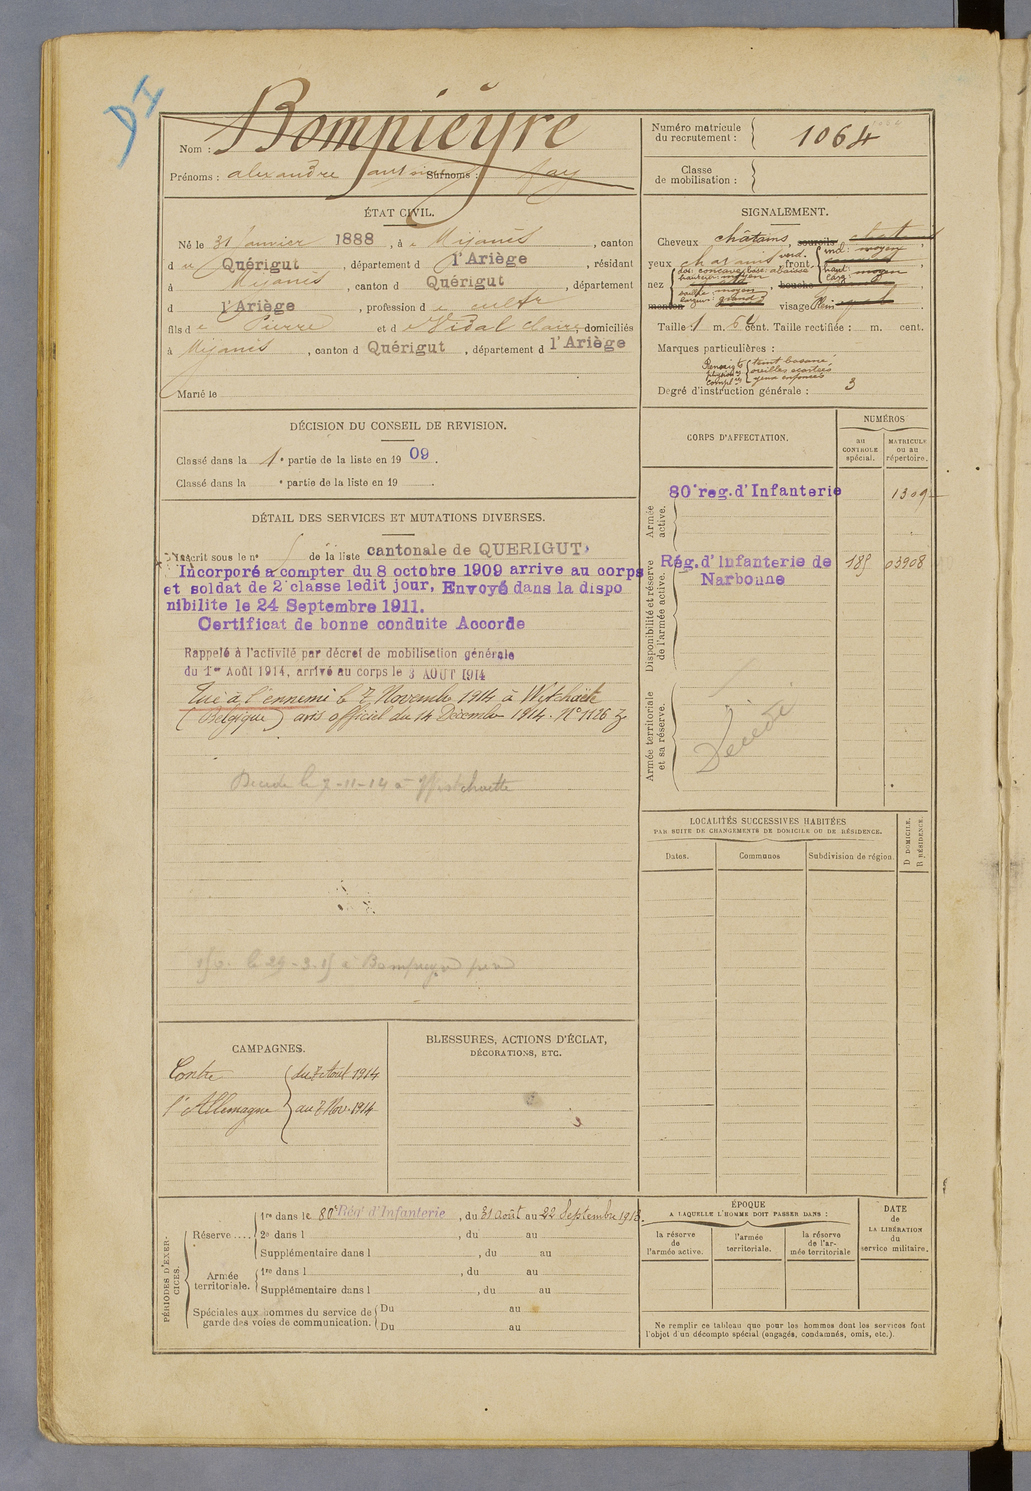 DI
Nom : Bompieyre
Prénoms : alexandre antoine Surnoms : fay
Numéro matricule du recrutement : 1064
Classe de mobilisation :
ÉTAT CIVIL.
Né le 31 Janvier 1888, à Mijanès, canton
de Quérigut, département d l'Ariège, résidant
à Mijanès, canton d Quérigut, département
d l'Ariège, profession de cultr
fils de Pierre et de Vidal Claire, domiciliés
à Mijanès, canton d Quérigut, département d l'Ariège
Marié le
SIGNALEMENT.
Cheveux châtains, sourcils
yeux châtains verd. front incl: moyen
haut: moyen
larg:
nez dos: concave base: abaissé
hauteur moyen
saillie moyen
largeur: grand, bouche
menton visage Plein
Taille : 1 m. 64 cent. Taille rectifiée : m. cent.
Marques particulières :
Renseigts physion. compl. teint basané
oreilles écartées
yeux enfoncés
Degré d'instruction générale : 3
DÉCISION DU CONSEIL DE REVISION.
Classé dans la 1e partie de la liste en 1909.
Classé dans la e partie de la liste en 19
CORPS D'AFFECTATION.
NUMÉROS
au CONTROLE spécial.
MATRICULE ou au répertoire.
Armée active.
80e reg. d'Infanterie 1309
Disponibilité et réserve de l'armée active.
Rég. d'Infanterie de Narbonne 185 03908
Armée territoriale et sa réserve.
Décédé
DÉTAIL DES SERVICES ET MUTATIONS DIVERSES.
Inscrit sous le no de la liste cantonale de QUERIGUT
Incorporé a compter du 8 octobre 1909 arrive au corps
et soldat de 2e classe ledit jour, Envoyé dans la dispo
nibilite le 24 Septembre 1911.
Certificat de bonne conduite Accorde
Rappelé à l'activité par décret de mobilisation générale
du 1er Août 1914, arrivé au corps le 3 AOUT 1914
Tué à l'ennemi le 7 Novembre 1914 à Wytchaëte
(Belgique) avis officiel du 14 Décembre 1914. No 1126
Décédé le 7-11-14 à Wystchaette
150. le 29-3-15 à Bompieyre père
LOCALITÉS SUCCESSIVES HABITÉES
PAR SUITE DE CHANGEMENTS DE DOMICILE OU DE RÉSIDENCE.
Dates.
Communes
Subdivision de région.
D DOMICILE.
R RÉSIDENCE.
CAMPAGNES.
Contre l'Allemagne
du 2 Août 1914
au 7 Nov. 1914
BLESSURES, ACTIONS D'ÉCLAT,
DÉCORATIONS, ETC.
PÉRIODES D'EXERCICES.
Réserve .... 1re dans le 80e Régt d'Infanterie, du 31 août au 22 Septembre 1913.
2e dans l , du au
Supplémentaire dans l , du au
Armée territoriale. 1re dans l , du au
Supplémentaire dans l , du au
Spéciales aux hommes du service de garde des voies de communication. Du au
Du au
ÉPOQUE
A LAQUELLE L'HOMME DOIT PASSER DANS :
la réserve de l'armée active.
l'armée territoriale.
la réserve de l'armée territoriale
DATE de LA LIBÉRATION du service militaire.
Ne remplir ce tableau que pour les hommes dont les services font
l'objet d'un décompte spécial (engagés, condamnés, omis, etc.).